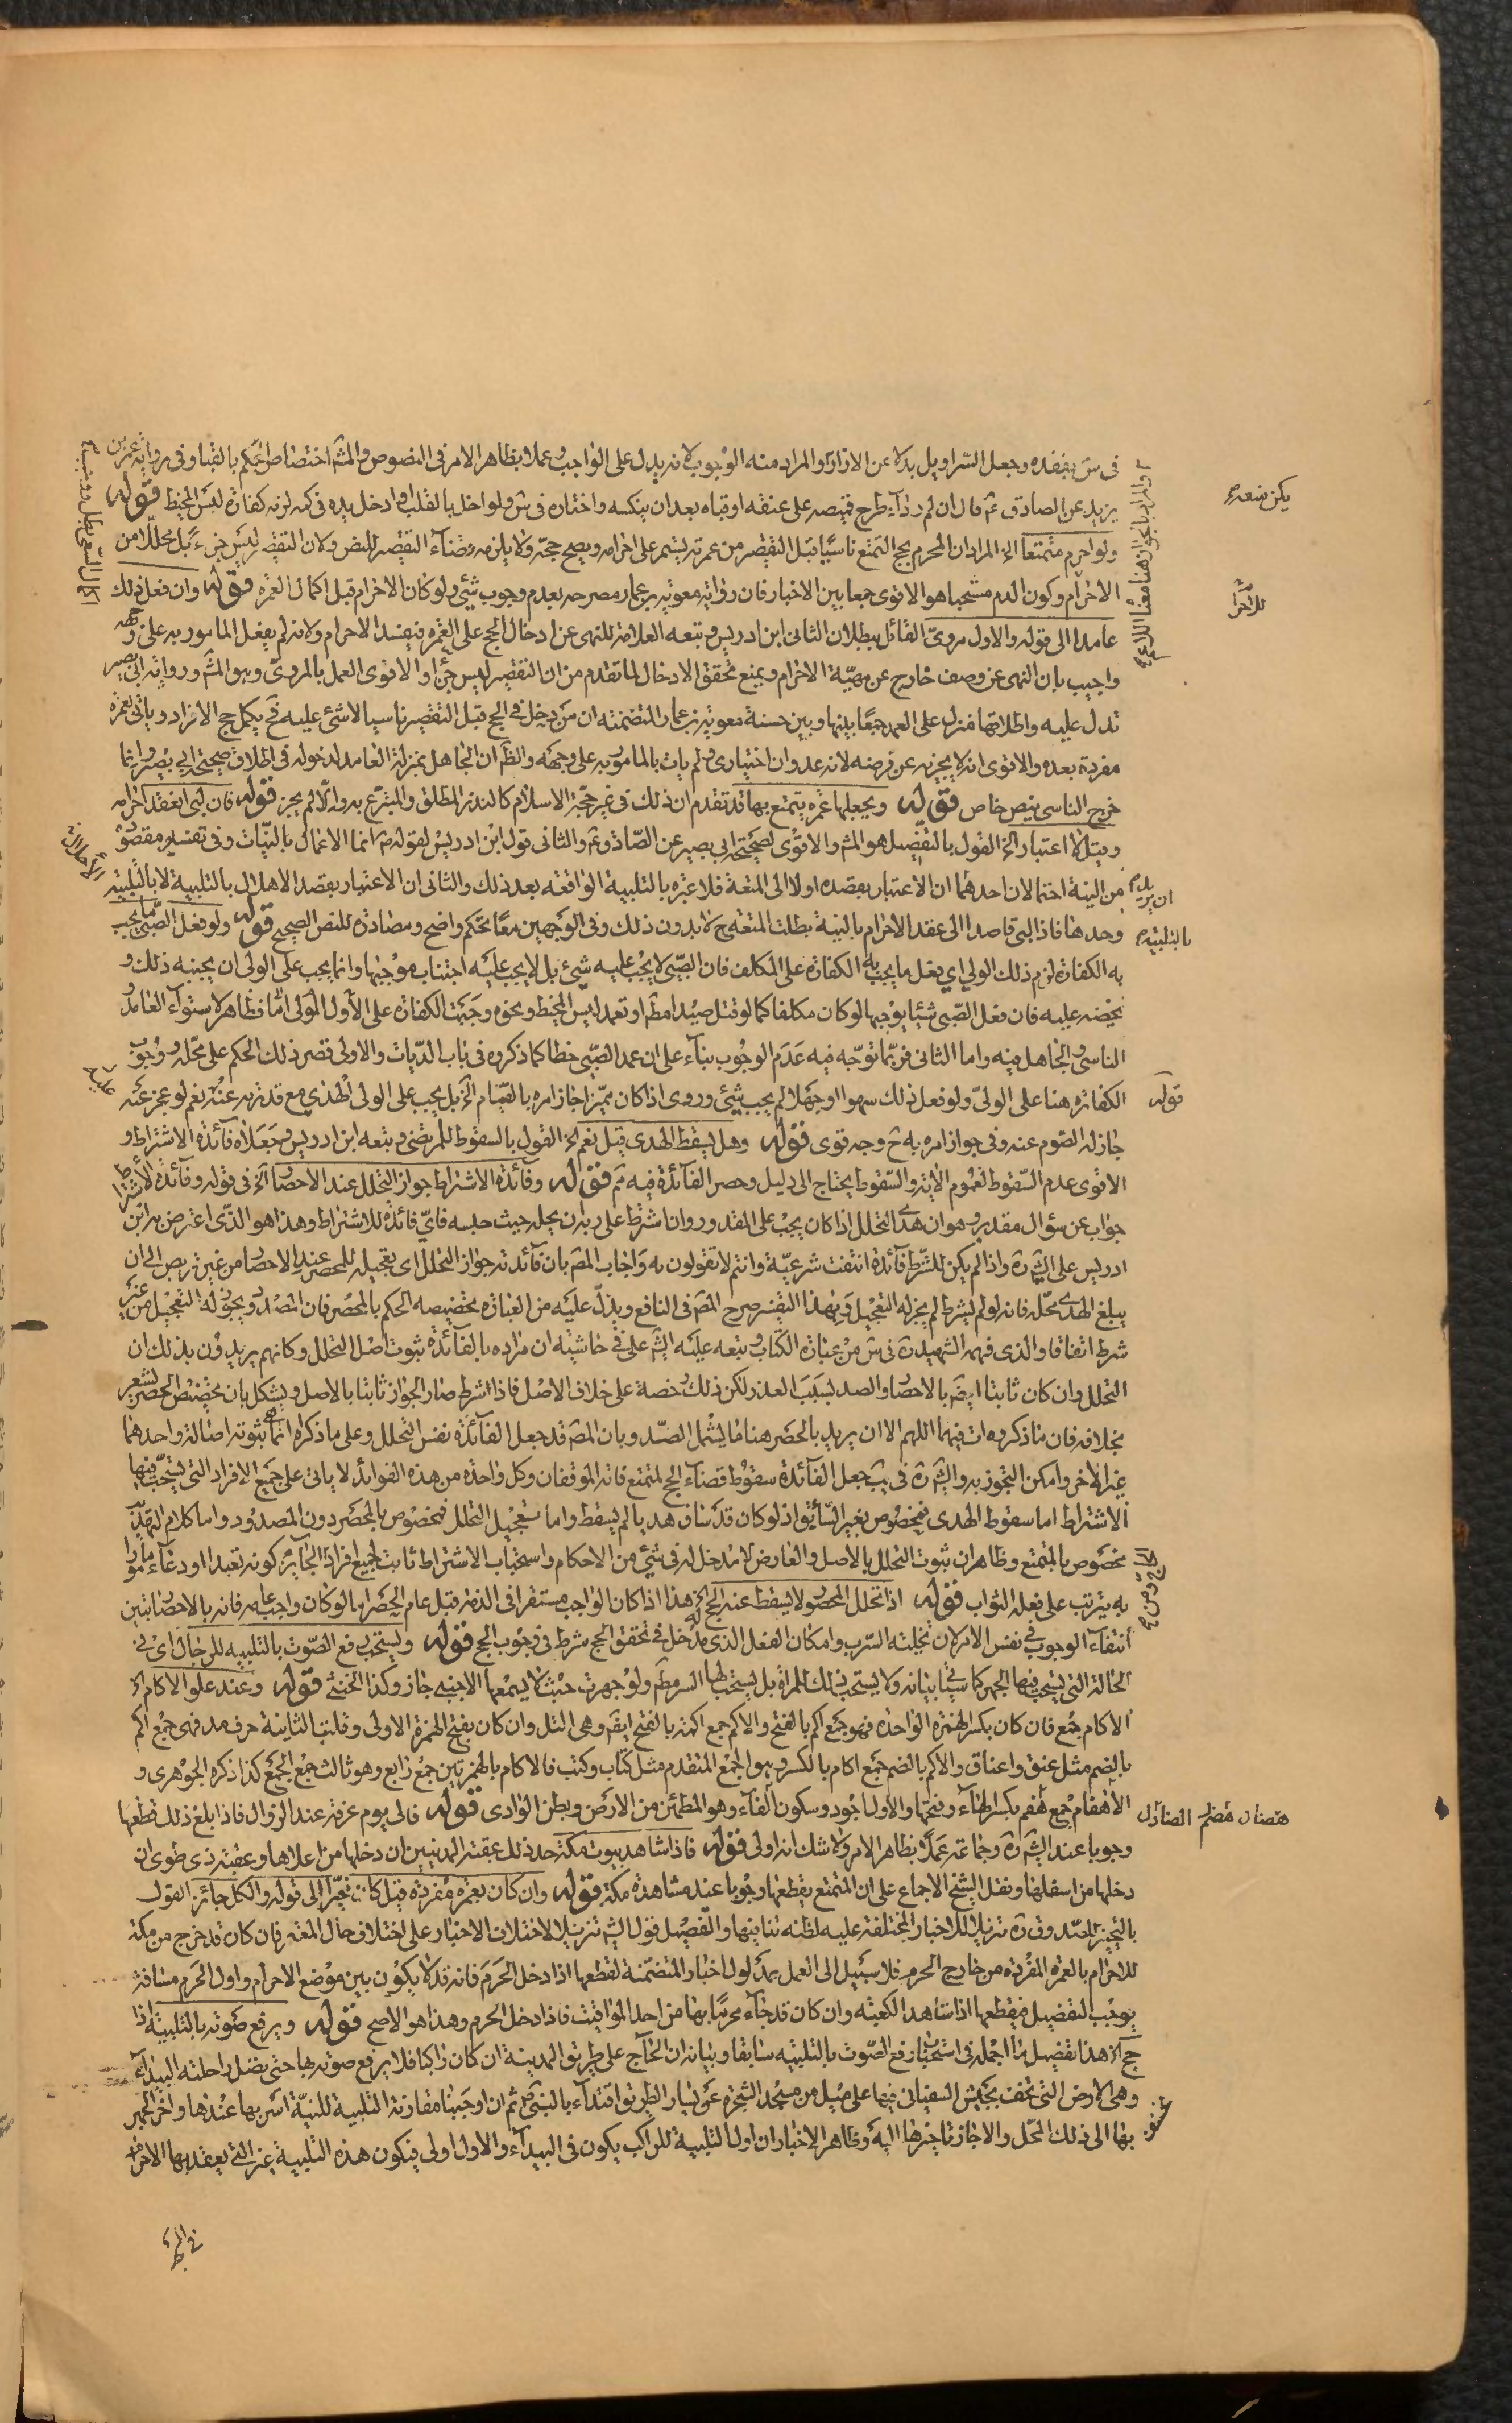 في ش يفقده وجعل السراويل بدلا عن الازار والمراد منه الوجوب لانه بدل على الواجب وعملا بظاهر الامر في النصوص والمش اختصاص الحكم بالقبا وفي رواية عمر بن
يزيد عن الصادق ع قال ان لم رداء طرح قميصه على عنقه او قباه بعد ان ينكسه واختاره في ش ولو اخل بالقلب او ادخل يده في كمه لزمه كفارة لبس المخيط قوله
ولو احرم متمتعا الخ المراد ان المحرم بحج التمتع ناسيا قبل التقصير من عمرته يستمر على احرامه ويصح حجه ولا يلزمه قضاء التقصير للنص ولان التقصير ليس جزء بل محللا من
الاحرام وكون الدم مستحبا هو الاقوى جمعا بين الاخبار فان رواية معوية بن عمار مصرحه بعدم وجوب شيء ولو كان الاحرام قبل اكمال العمره قوله وان فعل ذلك
عامدا الى قوله والاول مروي القائل ببطلان الثاني ابن ادريس وتبعه العلامة للنهي عن ادخال الحج على العمره فيفسد الاحرام ولانه لم يفعل المامور به على وجهه
واجيب بان النهي عن وصف خارج عن مهية الاحرام ويمنع تحقق الادخال لما تقدم من ان التقصير ليس جزأ والاقوى العمل بالمروي وهو المش ورواية ابي بصير
تدل عليه واطلاقها منزل على العمد جمعا بينها وبين حسنة معوية بن عمار المتضمنه ان من دخل في الحج قبل التقصير ناسيا لا شيء عليه فح يكمل حج الافراد وياتي بعمره
مفردة بعده والاقوى انه لا يجزيه عن فرضه لانه عدوان اختياري ولم يات بالمامور به على وجهه والظ ان الجاهل بمنزلة العامد لدخوله في اطلاق صحيحة ابي بصير وانما
خرج الناسي بنص خاص قوله ويجعلها عمره يتمتع بها قد تقدم ان ذلك في غير حجة الاسلام كالنذر المطلق والمتبرع به والا لم يجز قوله فان لبى انعقد احرامه
وقيل لا اعتبار الخ القول بالتفصيل هو المش والاقوى لصحيحة ابي بصير عن الصادق ع والثاني قول ابن ادريس لقوله ص انما الاعمال بالنيات وفي تفسير مقصوده
من النية احتمالان احدهما ان الاعتبار بقصده اولا الى المتعة فلا عبره بالتلبية الواقعه بعد ذلك والثاني ان الاعتبار بقصد الاهلال بالتلبية لا بالتلبية
وحدها فاذا لبى قاصدا الى عقد الاحرام بالنية بطلت المتعه ح لا بدون ذلك وفي الوجهين معا تحكم واضح ومصادرة للنص الصحيح قوله ولو فعل الصبي ما يجب
به الكفارة لزم ذلك الولي اي يفعل ما يجب به الكفارة على المكلف فان الصبي لا يجب عليه شيء بل لا يجب عليه اجتناب موجبها وانما يجب على الولي ان يجنبه ذلك و
الناسي والجاهل فيه واما الثاني فربما توجه فيه عدم الوجوب بناء على ان عمد الصبي خطا كما ذكروه في باب الديات والاولى قصر ذلك الحكم على محله ووجوب
الكفاره هنا على الولي ولو فعل ذلك سهوا او جهلا لم يجب شيء وروى اذا كان مميزا جاز امره بالصيام الخ بل يجب على الولي الهدي مع قدرته عنه نعم لو عجز عنه
جاز له الصوم عنه وفي جواز امره به ح وجه قوى قوله وهل يسقط الهدى قيل نعم الخ القول بالسقوط للمرتضى وتبعه ابن ادريس وجعلاه فائدة الاشتراط و
الاقوى عدم السقوط لعموم الاية والسقوط يحتاج الى دليل وحصر الفائدة فيه ثم قوله وفائدة الاشتراط جواز التحلل عند الاحصار الخ في قوله وفائدة الاشتراط
جواب عن سؤال مقدر وهو ان هدى التحلل اذا كان يجب على المقدور وان اشترط على ربه ان يحله حيث حبسه فاي فائدة للاشتراط وهذا هو الذي اعترض به ابن
ادريس على الشيخ ره واذا لم يكن للشرط فائدة انتفت شرعية وانتم لا تقولون به واجاب المص بان فائدته جواز التحلل اي تعجيله للمحصر عند الاحصار من غير تربص الى ان
يبلغ الهدى محله فانه لو لم يشرط لم يجز له التعجيل وبهذا التفسير صرح المص في النافع ويدل عليه من العبارة تخصيصه الحكم بالمحصر فان المصدود يجوز له التعجيل من غير
شرط اتفاقا والذى فهمه الشهيد ره في ش من عبارة الكتاب وتبعه عليه الش علي في حاشيته ان مراده بالفائدة ثبوت اصل التحلل وكانهم يريدون بذلك ان
التحلل وان كان ثابتا ايض بالاحصار والصد بسبب العذر لكن ذلك رخصة على خلاف الاصل فاذا شرط صار الجواز ثابتا بالاصل ويشكل بان تخصيص الحصر يشعر
بخلافه فان ما ذكروه ات فيهما اللهم الا ان يريد بالحصر هنا ما يشمل الصد وبان المص قد جعل الفائدة نفس التحلل وعلى ما ذكراه انما ثبوته اصالة واحدهما
غير الاخر وامكن التجوز به والشيخ ره في يب جعل الفائدة سقوط قضاء الحج لمتمتع فاته الموقفان وكل واحدة من هذه الفوائد لا ياتي على جميع الافراد التي يستحب فيها
الاشتراط اما سقوط الهدى فمخصوص بغير السائق اذ لو كان قد ساق هديا لم يسقط واما تعجيل التحلل فمخصوص بالمحصر دون المصدود واما كلام التهذيب
مخصوص بالمتمتع وظاهر ان ثبوت التحلل بالاصل والعارض لا مدخل له في شيء من الاحكام واستحباب الاشتراط ثابت لجميع افراد الحاج كونه تعبدا او دعاء مامورا
به يترتب على فعله الثواب قوله اذا تحلل المحصور لا يسقط عنه الحج الخ هذا اذا كان الواجب مستقرا في الذمة قبل عام الحصر اما لو كان واجبا عامه فانه بالاحصار تبين
انتفاء الوجوب في نفس الامر لان تخلية السرب وامكان الفعل الذي له مدخل في تحقق الحج شرط في وجوب الحج قوله ويستحب رفع الصوت بالتلبيه للرجال اي في
الحالة التي يستحب فيها الجهر كما سيأتي بيانه ولا يستحب ذلك للمراة بل يستحب لها السر مطم ولو جهرت حيث لا يسمعها الاجنبي جاز وكذا الخنثى قوله وعند علو الاكام الخ
الاكام جمع فان كان بكسر الهمزة الواحدة فهو جمع اكم بالفتح والاكم جمع اكمة بالفتح ايضم وهي التل وان كان بفتح الهمزة الاولى وقلبت الثانية حرف مد فهي جمع اكم
بالضم مثل عنق واعناق والاكم بالضم جمع اكام بالكسر وهو الجمع المتقدم مثل كتاب وكتب فالاكام بالهمزتين جمع رابع وهو ثالث جمع الجمع كذا ذكره الجوهرى و
الاهضام جمع هضم بكسر الهاء وفتحها والاول اجود وسكون الضاد وهو المطمئن من الارض وبطن الوادى قوله فالى يوم عرفه عند الزوال فاذا بلغ ذلك قطعها
وجوبا عند الشيخ ره وجماعته عملا بظاهر الامر ولا شك انه اولى قوله فاذا شاهد بيوت مكة حد ذلك عقبة المدنيين ان دخلها من اعلاها وعقبة ذى طوى ان
دخلها من اسفلها ونقل الشيخ الاجماع على ان المتمتع يقطعها وجوبا عند مشاهدة مكة قوله وان كان بعمره مفرده قيل كان مخيرا الى قوله والكل جائز القول
بالتخيير للصدوق ره تنزيلا للاخبار المختلفه عليه لظنه تنافيها والتفصيل قول الشيخ تنزيلا لاختلاف الاخبار على اختلاف حال المعتمر فان كان قد خرج من مكة
للاحرام بالعمره المفرده من خارج الحرم فلا سبيل الى العمل بمدلول اخبار المتضمنة لقطعها اذا دخل الحرم فانه قد لا يكون بين موضع الاحرام واول الحرم مسافة
يوجب التفصيل فيقطعها اذا شاهد الكعبة وان كان قد جاء محرما بها من احد المواقيت فاذا دخل الحرم وهذا هو الاصح قوله ويرفع صوته بالتلبية اذا
حج الخ هذا تفصيل لما اجمله في استحباب رفع الصوت بالتلبيه سابقا وبيانه ان الحاج على طريق المدينة ان كان راكبا فلا يرفع صوته بها حتى يصل راحلته البيداء
وهي الارض التي تخسف بجيش السفياني فيها على ميل من مسجد الشجرة عن يسار الطريق اقتداء بالنبي ص ثم ان اوجبنا مقارنة التلبية للنية اسر بها عندها واخر الجهر
بها الى ذلك المحل والا جاز تاخيرها اليه وظاهر الاخبار ان اول التلبية للراكب يكون في البيداء والاول اولى فيكون هذه التلبية غير التي يعقد بها الاحرام
يكن معه
للاحرام
ان يريد
بالتلبية
قوله